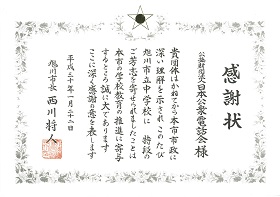 感謝状
公益財団法人日本公衆電話会様
貴団体はかねてから本市市政に
深い理解を示されこのたび
旭川市立中学校に 特段の
ご芳志を寄せられましたことは
本市の学校教育の推進に寄与
するところ誠に大であります
ここに深く感謝の意を表します
平成三十年一月二十二日
旭川市長 西川将人